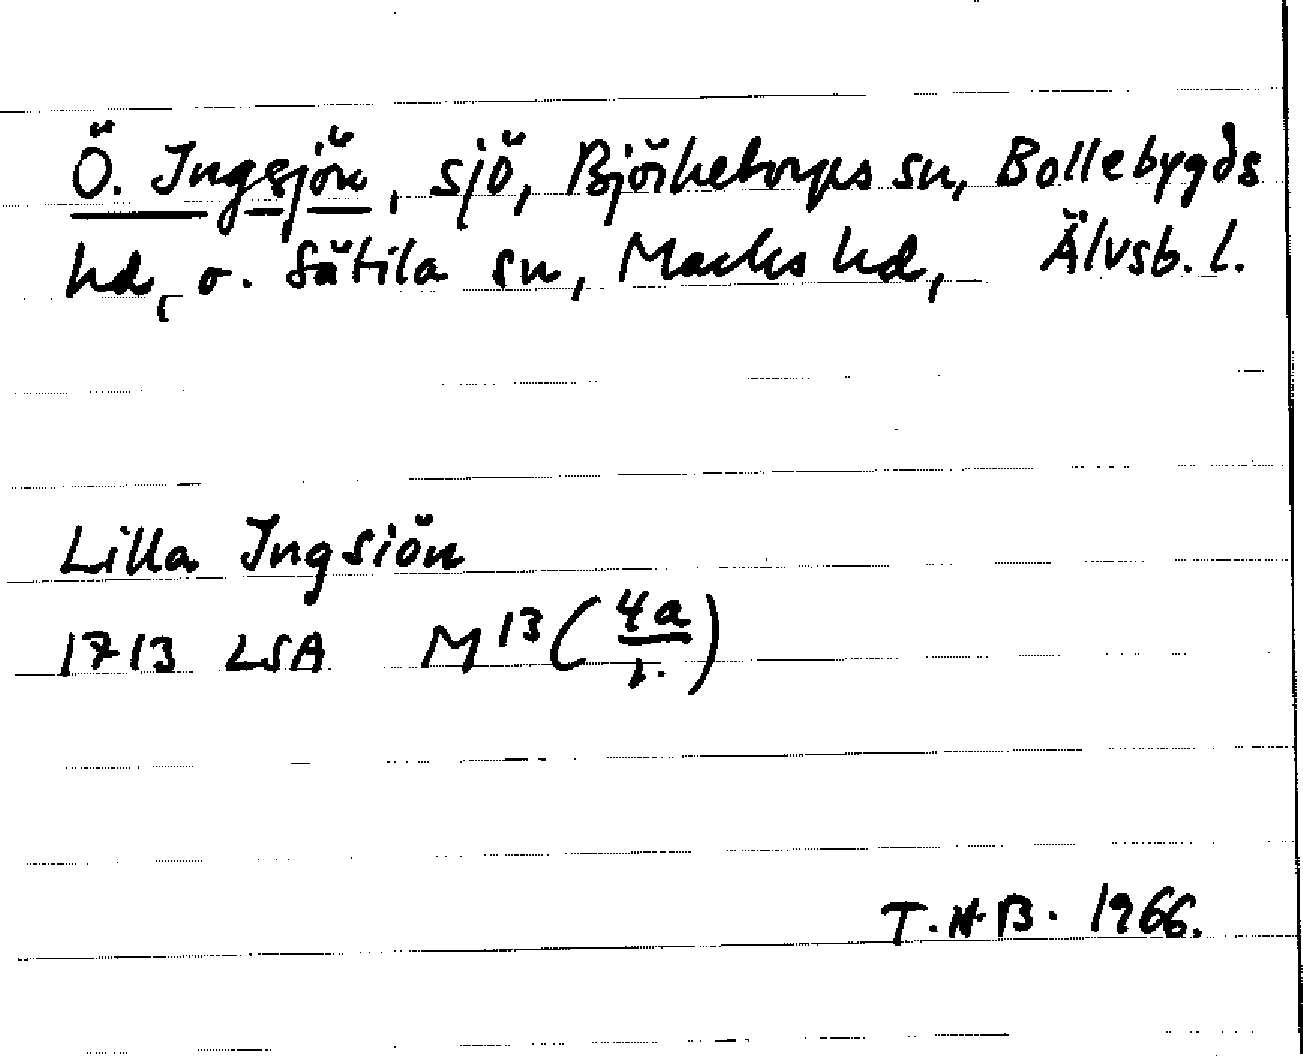 Ö. Ingsjön, sjö, Björketorps sn, Bollebygds
hd, o. Sätila sn, Marks hd, Älvsb. l.
Lilla Ingsiön
1713 LSA M 13 (4a/1.)
T.HB. 1966.